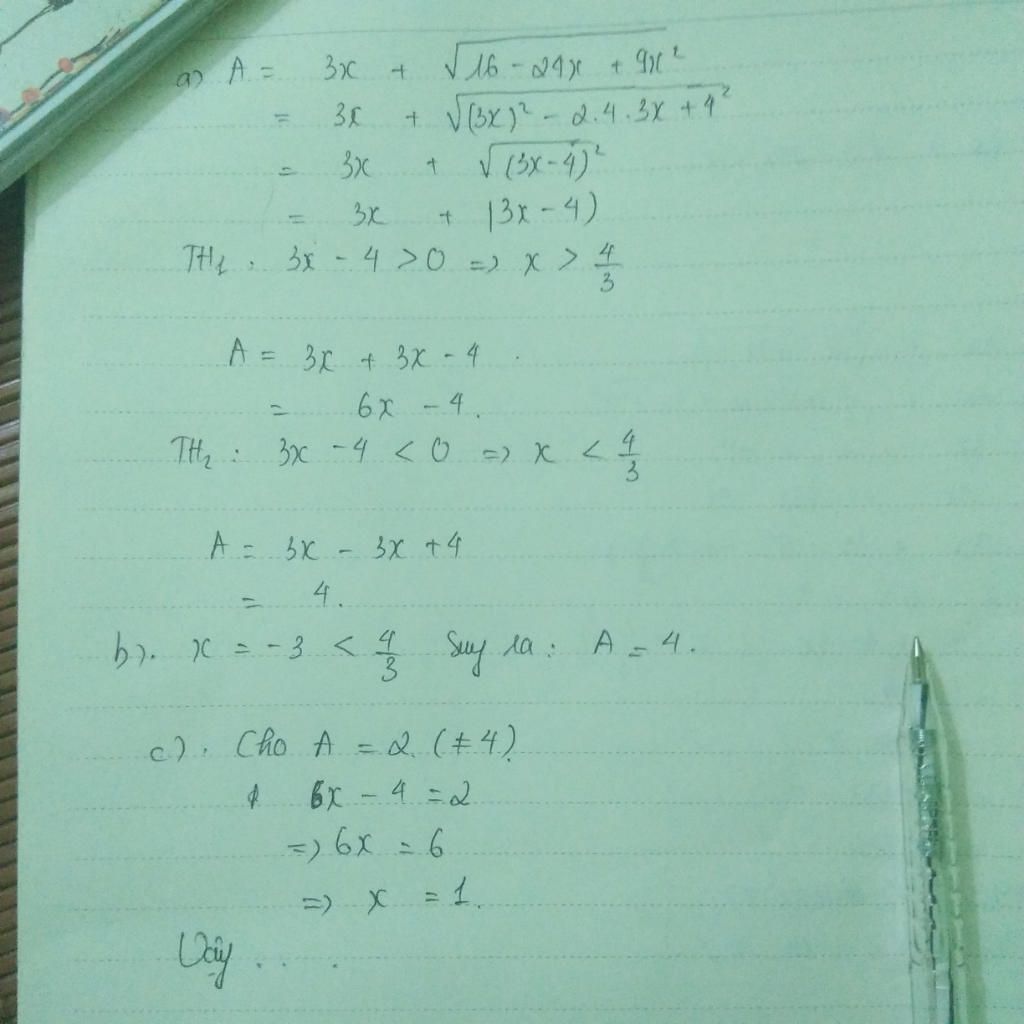 a) A = 3x + √16 - 24x + 9x²
= 3x + √(3x)² - 2.4.3x + 4²
= 3x + √(3x-4)²
= 3x + |3x - 4)
TH₁ : 3x - 4 > 0 => x > 4/3
A = 3x + 3x - 4
= 6x - 4.
TH₂ : 3x - 4 < 0 => x < 4/3
A = 3x - 3x + 4
= 4.
b). x = -3 < 4/3 Suy ra : A = 4.
c). Cho A = 2. (≠ 4).
6x - 4 = 2
=> 6x = 6
=> x = 1.
Vậy . . .